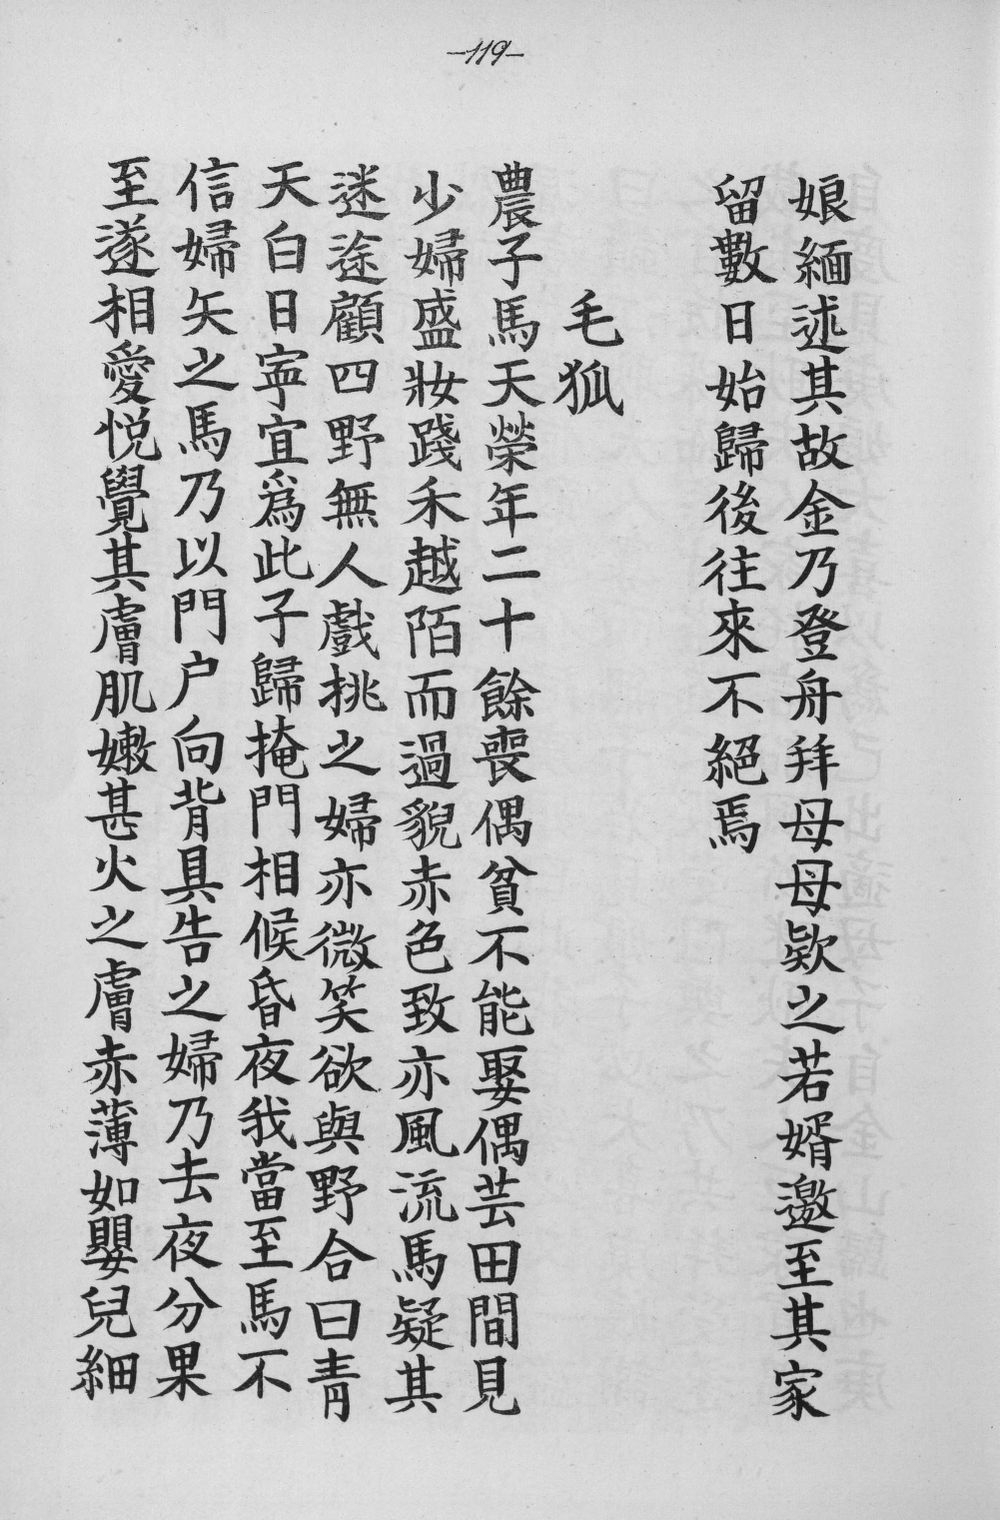 -119-
娘緬述其故金乃登舟拜母母欵之若婿邀至其家
留數日始歸後往來不絕焉
毛狐
農子馬天榮年二十餘喪偶貧不能娶偶芸田間見
少婦盛妝踐禾越陌而過貌赤色致亦風流馬疑其
迷途顧四野無人戲挑之婦亦微笑欲與野合曰青
天白日寧宜爲此子歸掩門相候昏夜我當至馬不
信婦矢之馬乃以門户向背具告之婦乃去夜分果
至遂相愛悅覺其膚肌嫩甚火之膚赤薄如嬰兒細